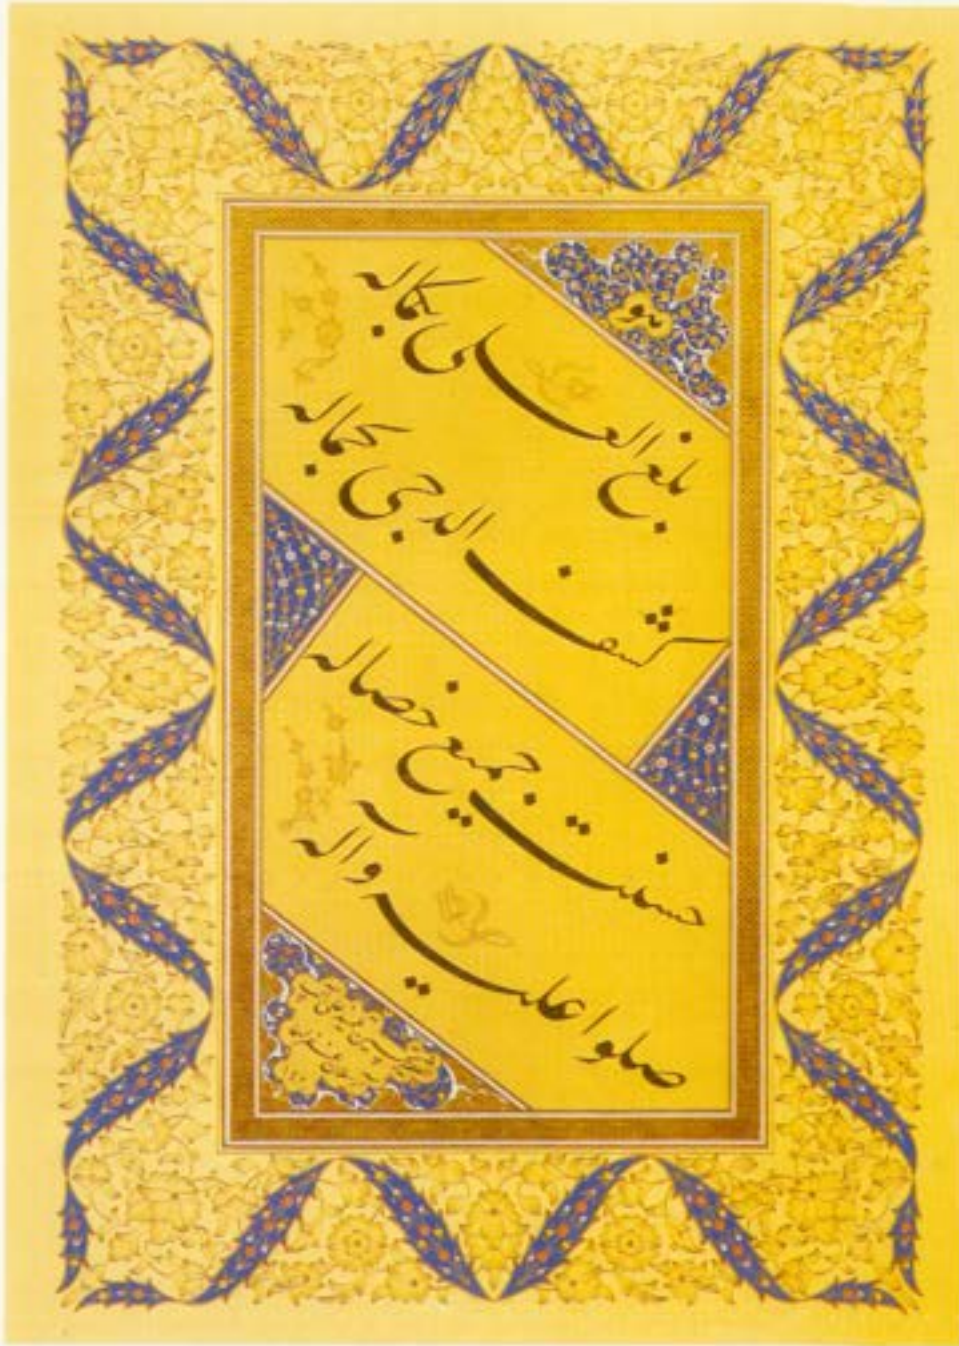 هو
بلغ العلی بکماله
کشف الدجی بجماله
حسنت جمیع خصاله
صلوا علیه و آله